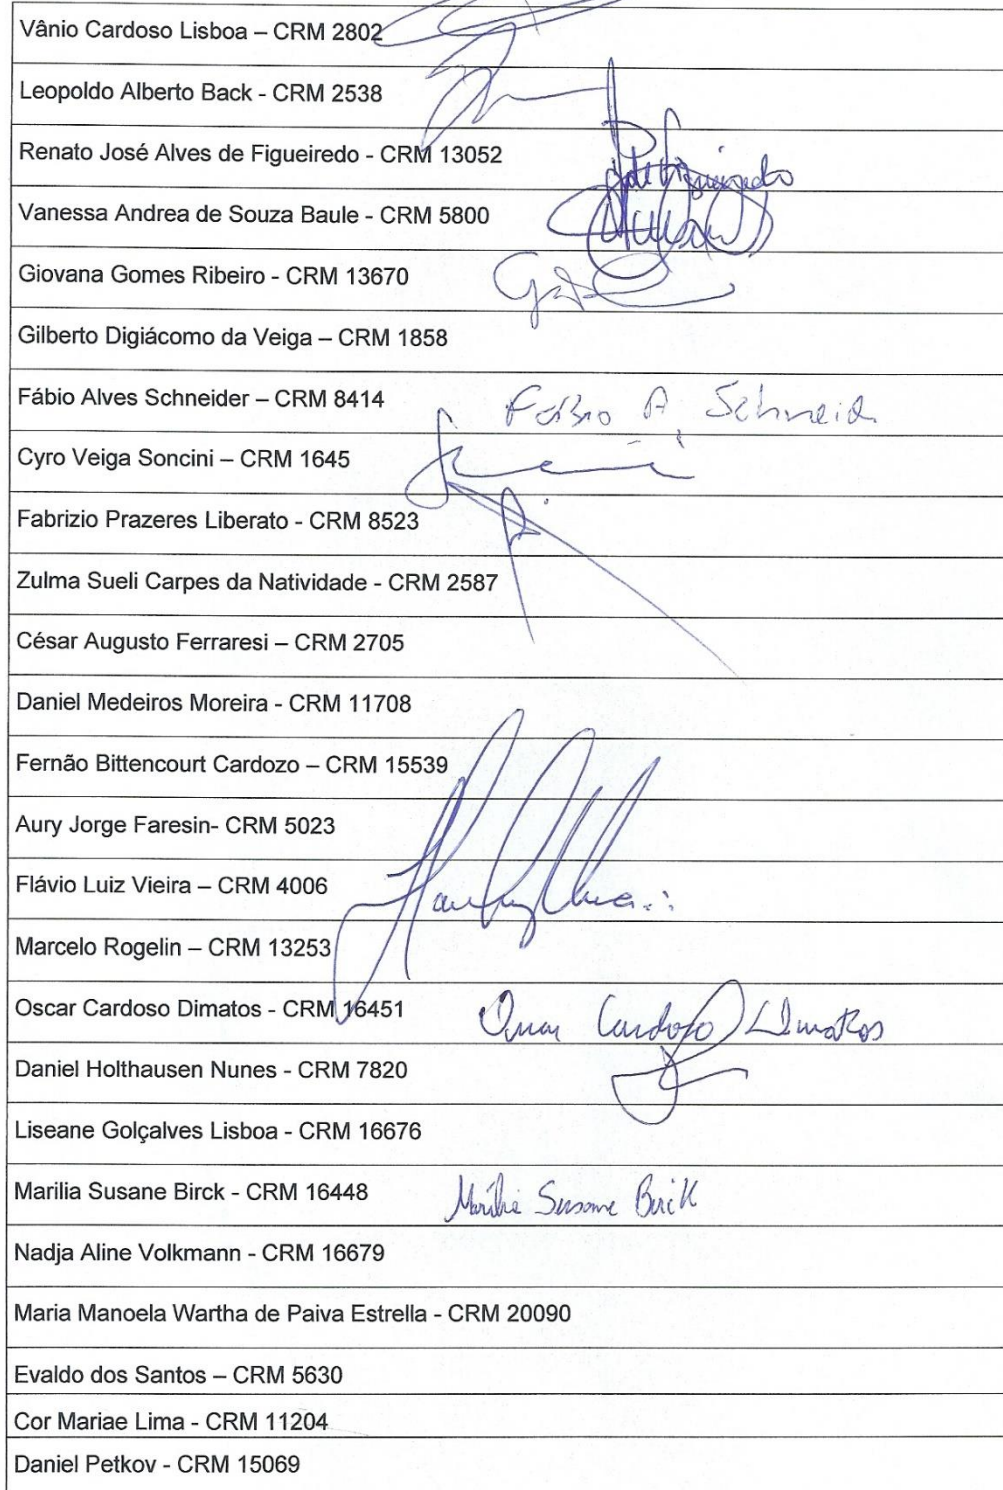 Vânio Cardoso Lisboa – CRM 2802
Leopoldo Alberto Back - CRM 2538
Renato José Alves de Figueiredo - CRM 13052
Vanessa Andrea de Souza Baule - CRM 5800
Giovana Gomes Ribeiro - CRM 13670
Gilberto Digiácomo da Veiga – CRM 1858
Fábio Alves Schneider – CRM 8414 Fábio A. Schneid
Cyro Veiga Soncini – CRM 1645
Fabrizio Prazeres Liberato - CRM 8523
Zulma Sueli Carpes da Natividade - CRM 2587
César Augusto Ferraresi – CRM 2705
Daniel Medeiros Moreira - CRM 11708
Fernão Bittencourt Cardozo – CRM 15539
Aury Jorge Faresin- CRM 5023
Flávio Luiz Vieira – CRM 4006
Marcelo Rogelin – CRM 13253
Oscar Cardoso Dimatos - CRM 16451 Oscar Cardoso Dimatos
Daniel Holthausen Nunes - CRM 7820
Liseane Golçalves Lisboa - CRM 16676
Marilia Susane Birck - CRM 16448 Marília Susane Birck
Nadja Aline Volkmann - CRM 16679
Maria Manoela Wartha de Paiva Estrella - CRM 20090
Evaldo dos Santos – CRM 5630
Cor Mariae Lima - CRM 11204
Daniel Petkov - CRM 15069